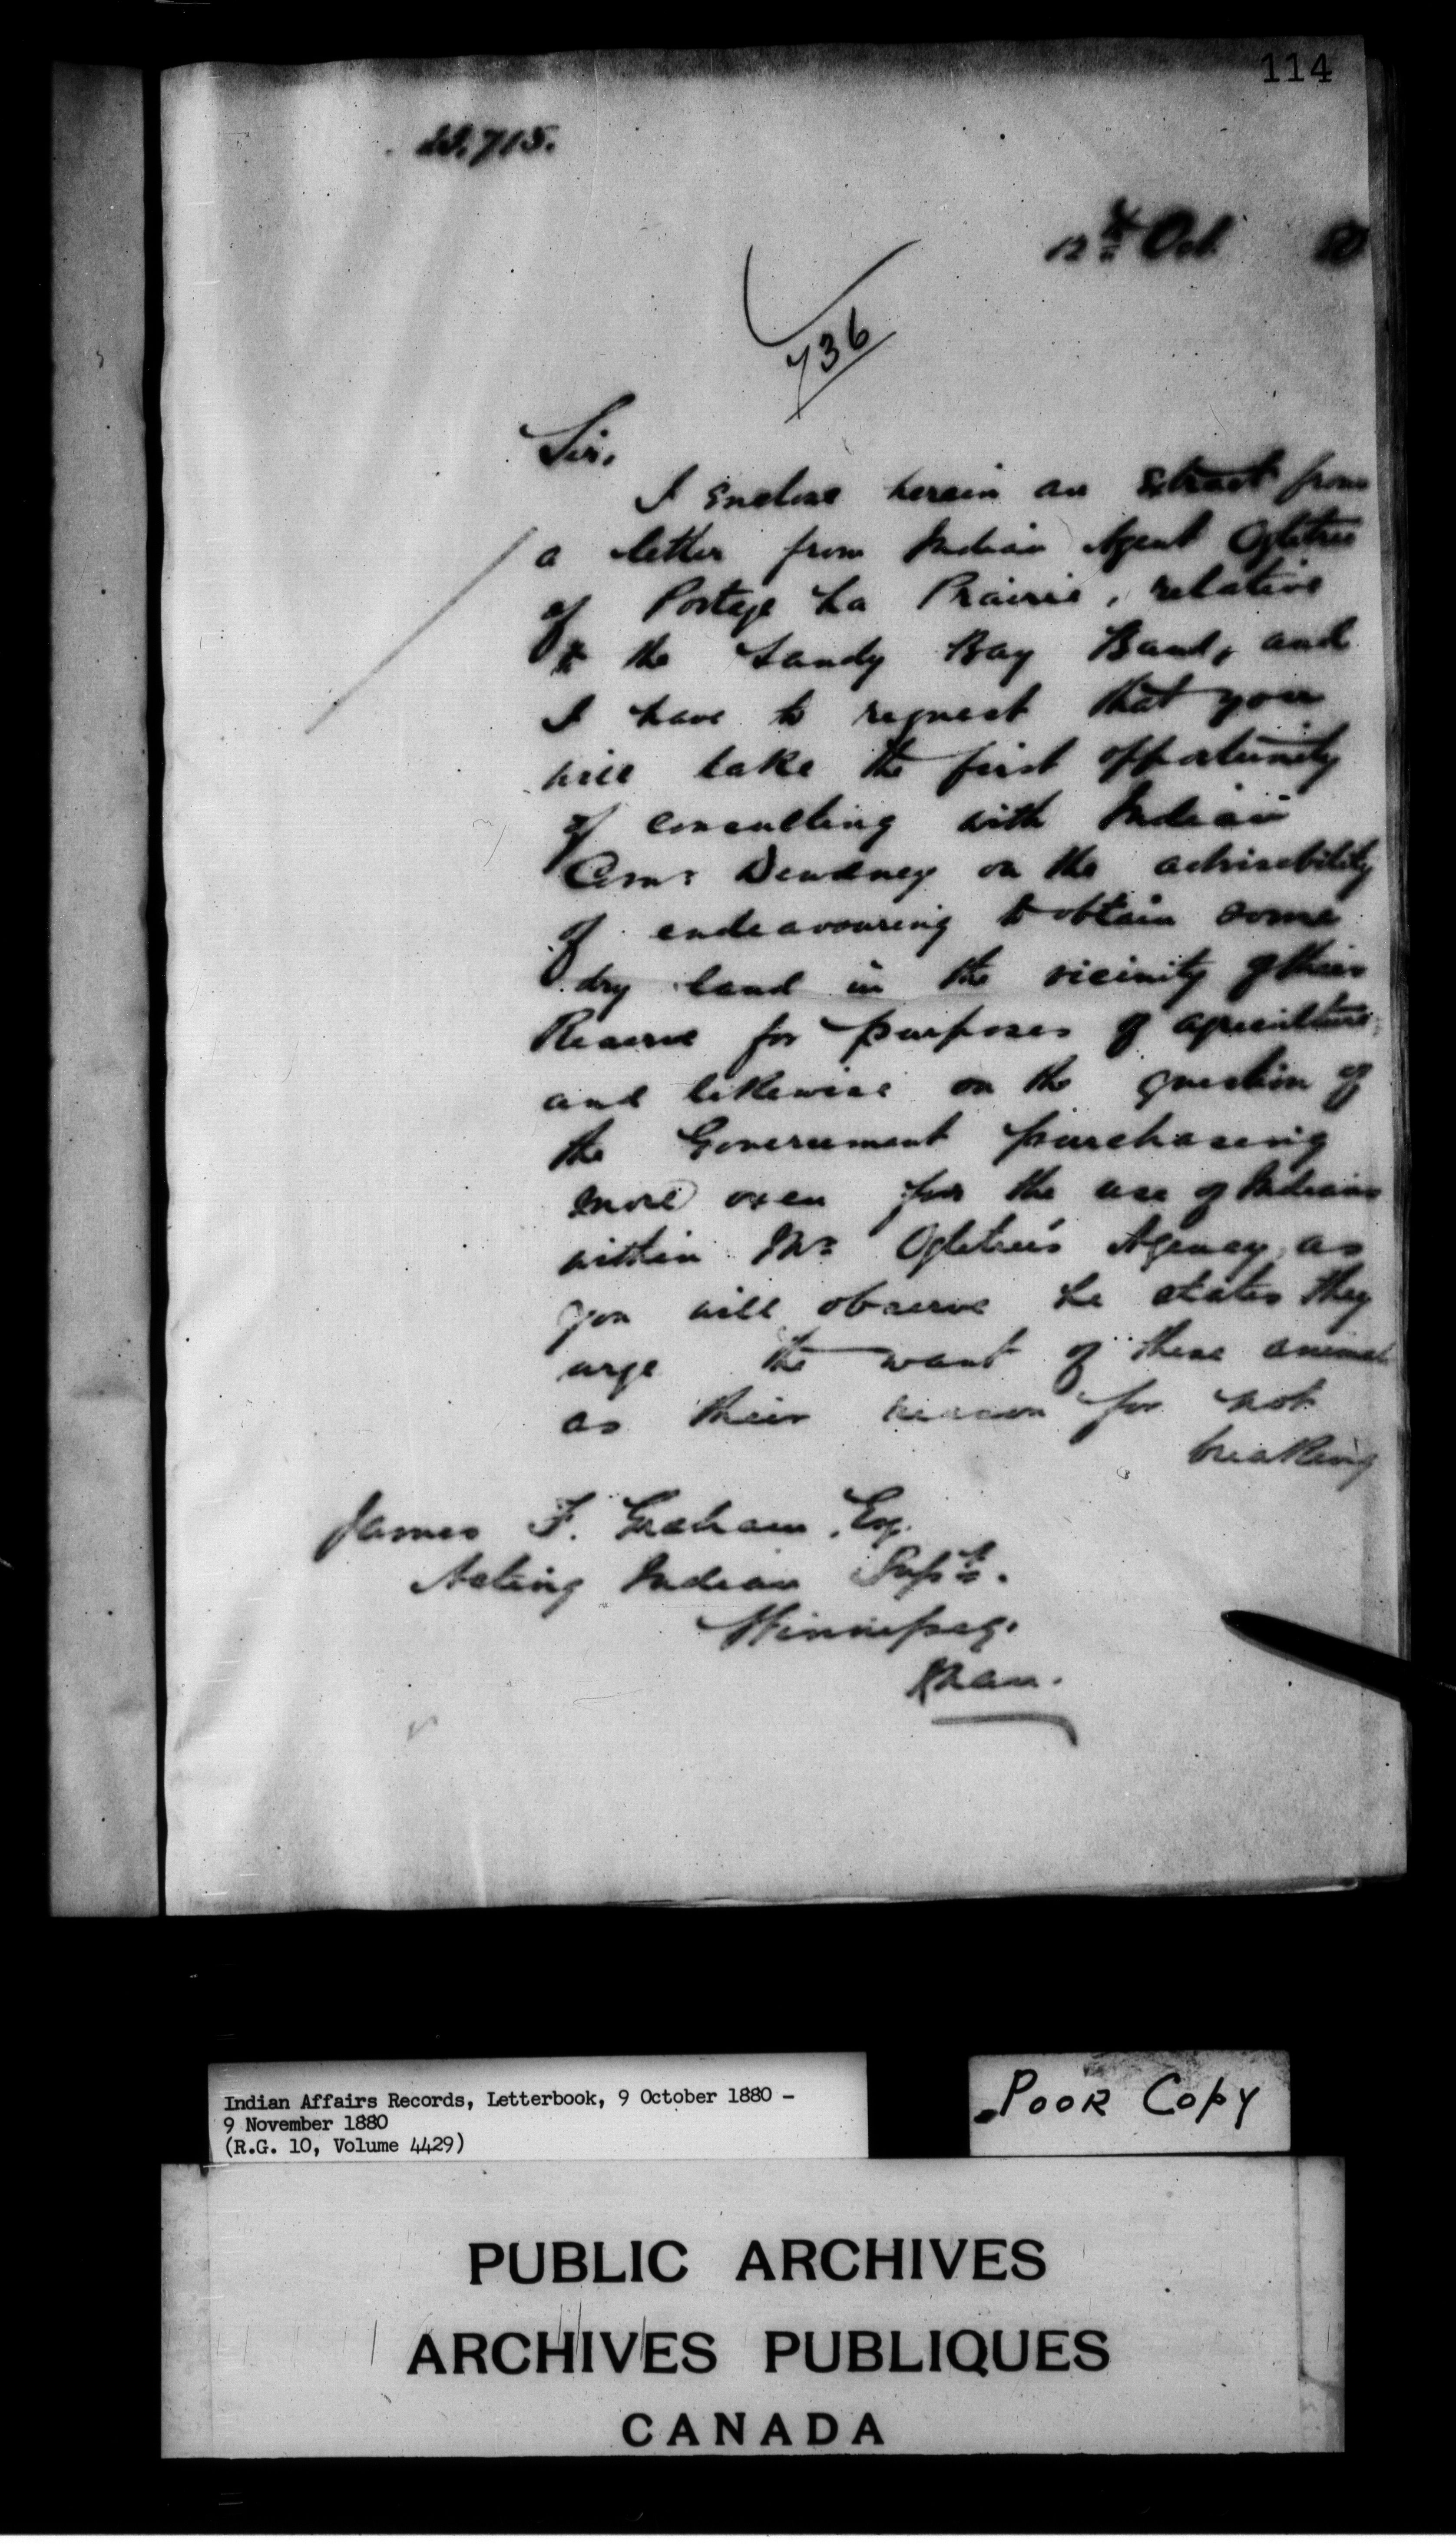 114
22.715.
12th Oct 80
736
Sir,
I enclose herein an extract from
a letter from Indian Agent Ogletree
of Portage La Prairie, relative
to the Sandy Bay Band, and
I have to request that you
will take the first opportunity
of consulting with Indian
Comr Dewdney on the advisability
of endeavouring to obtain some
dry land in the vicinity of their
Reserve for purposes of agriculture;
and likewise on the question of
the Government purchasing
more oxen for the use of Indians
within Mr Ogletree's Agency, as
you will observe he states they
urge the want of these animals
as their reason for not
breaking
James F. Graham, Esq.
Acting Indian Supt.
Winnipeg.
Man.
Indian Affairs Records, Letterbook, 9 October 1880 -
9 November 1880
(R.G. 10, Volume 4429)
POOR COPY
PUBLIC ARCHIVES
ARCHIVES PUBLIQUES
CANADA